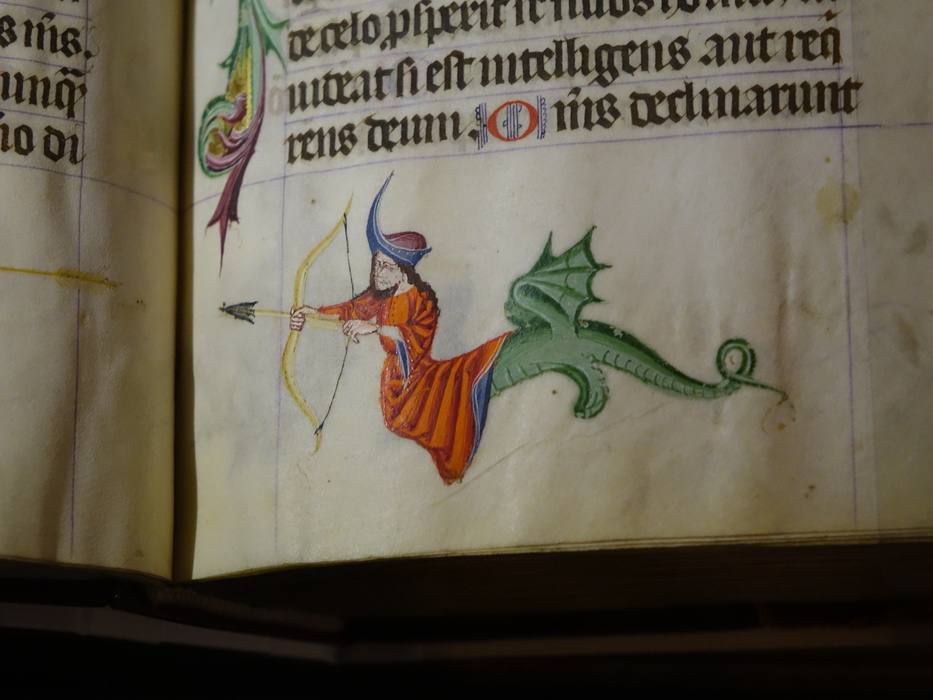 s m̄s.
unq̄
io di
de celo ꝓspexit sup filios hominū ut
uideat si est intelligens aut req̄
rens deum. Om̄s declinarunt